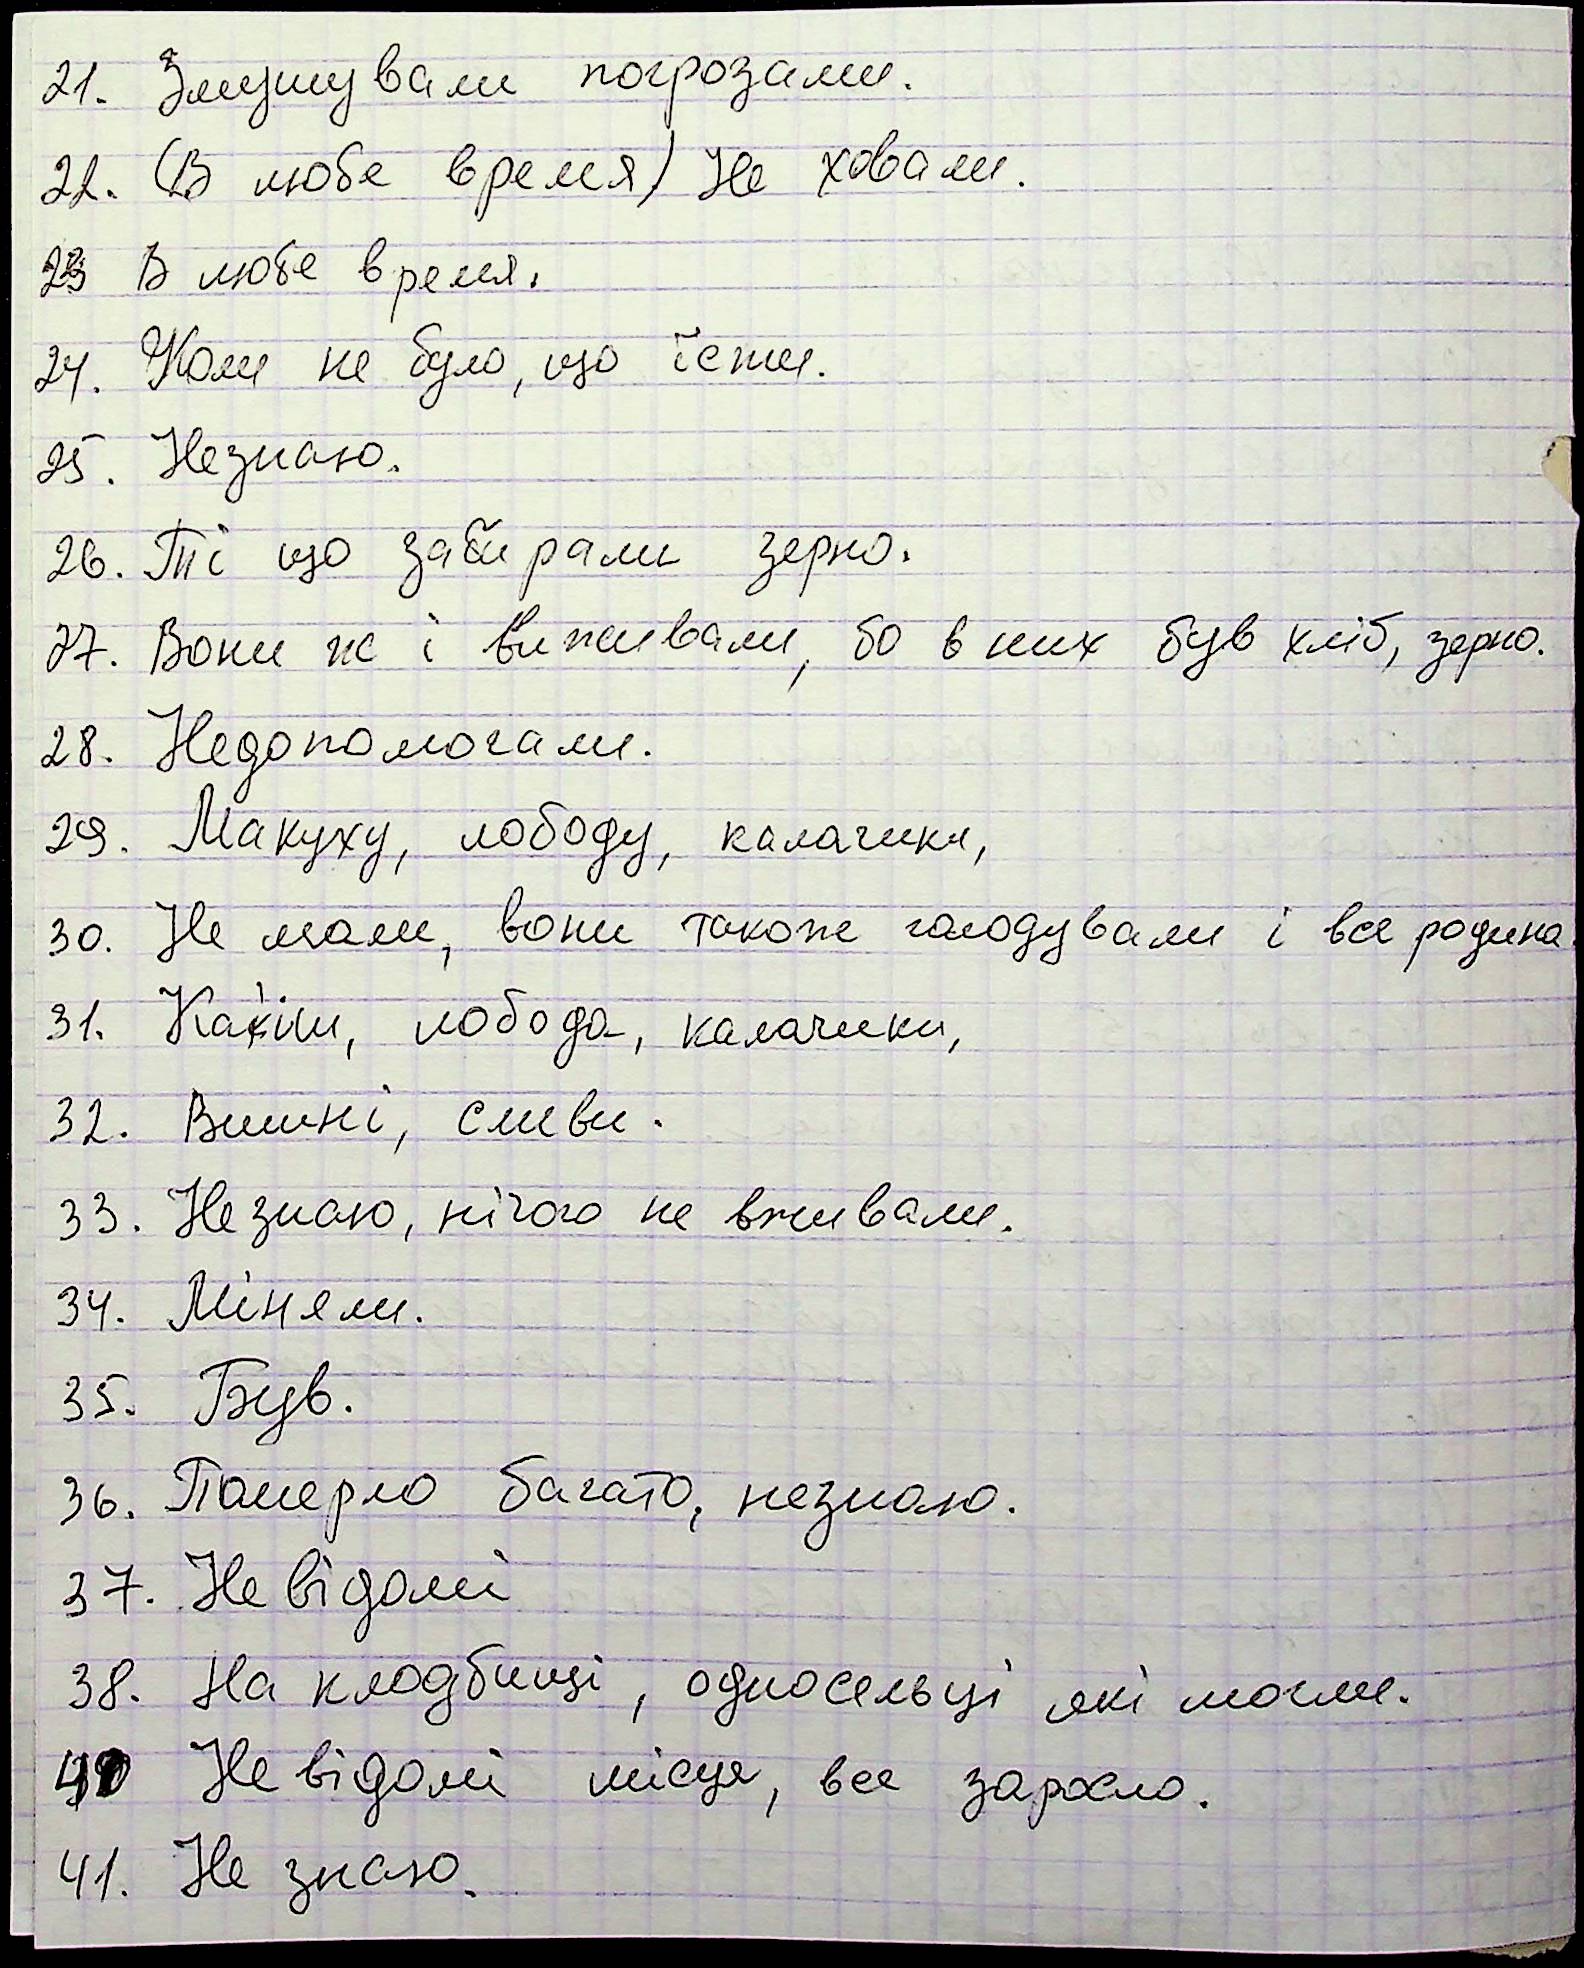 21. Змушували погрозами.
22. (В любе время) Не ховали.
23 В любе время.
24. Коли не було, що їсти.
25. Незнаю.
26. Ті що забирали зерно.
27. Вони ж і виживали, бо в них був хліб, зерно.
28. Недопомогали.
29. Макуху, лободу, калачики,
30. Не мали, вони також голодували і вся родина.
31. Кахіш, лобода, калачики,
32. Вишні, сливи.
33. Не знаю, нічого не вживали.
34. Міняли.
35. Був.
36. Померло багато, незнаю.
37. Не відомі
38. На клодбищі, односельці які могли.
40 Не відомі місця, все заросло.
41. Не знаю.